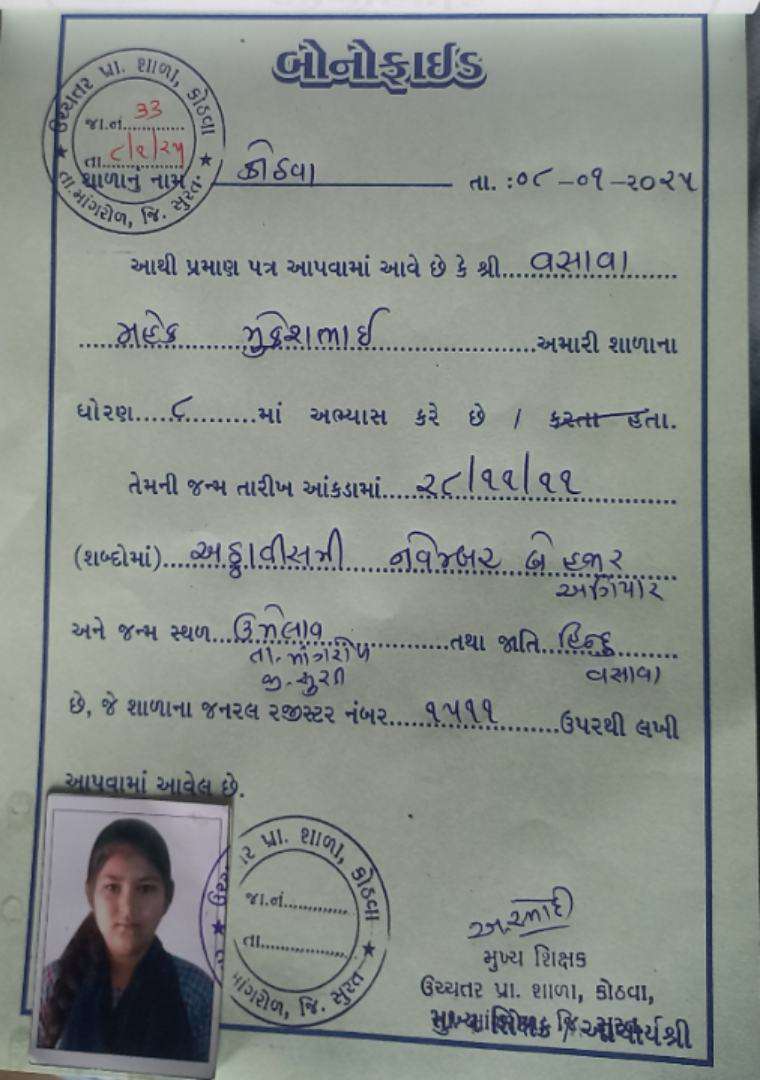 બોનોફાઈડ
ઉચ્ચતર પ્રા. શાળા, કોઠવા
જા.નં. 33
તા. ૮/૧/૨૫
તા. માંગરોળ, જિ. સુરત.
શાળાનું નામ કોઠવા તા. :૦૮ -૦૧ -૨૦૨૫
આથી પ્રમાણ પત્ર આપવામાં આવે છે કે શ્રી....વસાવા
મહેક મુકેશભાઈ અમારી શાળાના
ધોરણ.....૮.........માં અભ્યાસ કરે છે / કરતા હતા.
તેમની જન્મ તારીખ આંકડામાં.....૨૮/૧૧/૧૧
(શબ્દોમાં)...અઠ્ઠાવીસમી નવેમ્બર બે હજાર
અગિયાર
અને જન્મ સ્થળ...ઉમેલાવ.........તથા જાતિ...હિન્દુ
તા. માંગરોળ વસાવા
જી. સુરત
છે, જે શાળાના જનરલ રજીસ્ટર નંબર.....૧૫૧૧.......ઉપરથી લખી
આપવામાં આવેલ છે.
તર પ્રા. શાળા, કોઠવા
જા.નં.
તા.
માંગરોળ, જિ. સુરત
મુખ્ય શિક્ષક
ઉચ્ચતર પ્રા. શાળા, કોઠવા,
મુખ્ય શિક્ષક / આચાર્યશ્રી